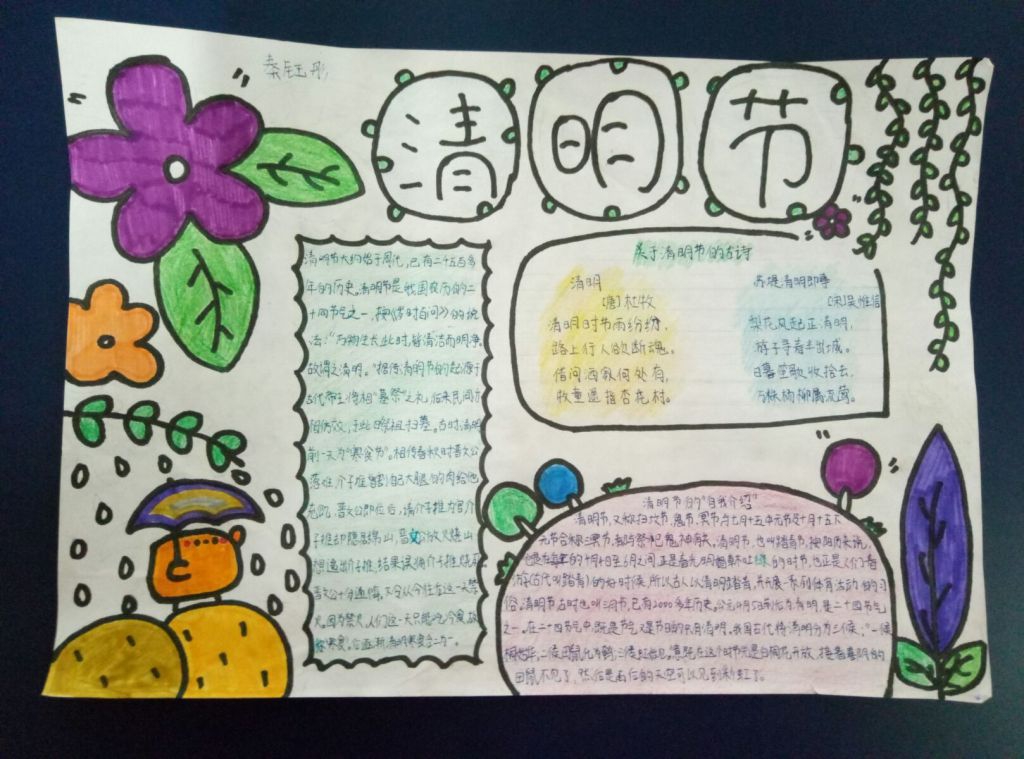 秦钰彤
清明节
清明节大约始于周代，已有二千五百多
年的历史。清明节是我国农历的二
十四节气之一，按《岁时百问》的统
法：“万物生长此时，皆清洁而明净。
故谓之清明。”据传清明节的起源于
古代帝王将相“墓祭”之礼，后来民间亦
相仿效，于此日祭祖扫墓。古时，清明
前一天为“寒食节”。相传春秋时晋文公
落难，介子推割自己大腿的肉给他
充饥，晋文公即位后，请介子推为官，介
子推却隐居绵山，晋文公放火烧山
想逼出介子推，结果误将介子推烧死
晋文公十分遗憾，
人们这一天只能吃冷食，故
称“寒食”。
关于清明节的古诗
清明
[唐]杜牧
清明时节雨纷纷，
路上行人欲断魂。
借问酒家何处有，
牧童遥指杏花村。
苏堤清明即事
[宋]吴惟信
梨花风起正清明，
游子寻春半出城。
日暮笙歌收拾去，
万株杨柳属流莺。
清明节的“自我介绍”
清明节，又称扫坟节、鬼节、冥节与七月十五中元节及十月十五下
元节合称三冥节，都与祭祀鬼神有关。清明节，也叫踏青节，按阳历来说，
的四月4日至6月之间，正是春光明媚草木吐绿的时节，也正是人们春
游(古代叫踏青)的好时候，所以古人以清明踏青，并开展一系列体育活动的习
俗。清明节，古时也叫三月节，已有2000多年历史。公元4月5日前后为清明，是二十四节气
之一，在二十四节气中，既是节气又是节日的只有清明。我国古代将清明分为三候：“一候
桐始华，二候田鼠化为鹌，三候虹始见。”意即在这个时节先是白桐花开放，接着喜阴的
田鼠不见了，然后是雨后的天空可以见到彩虹了。